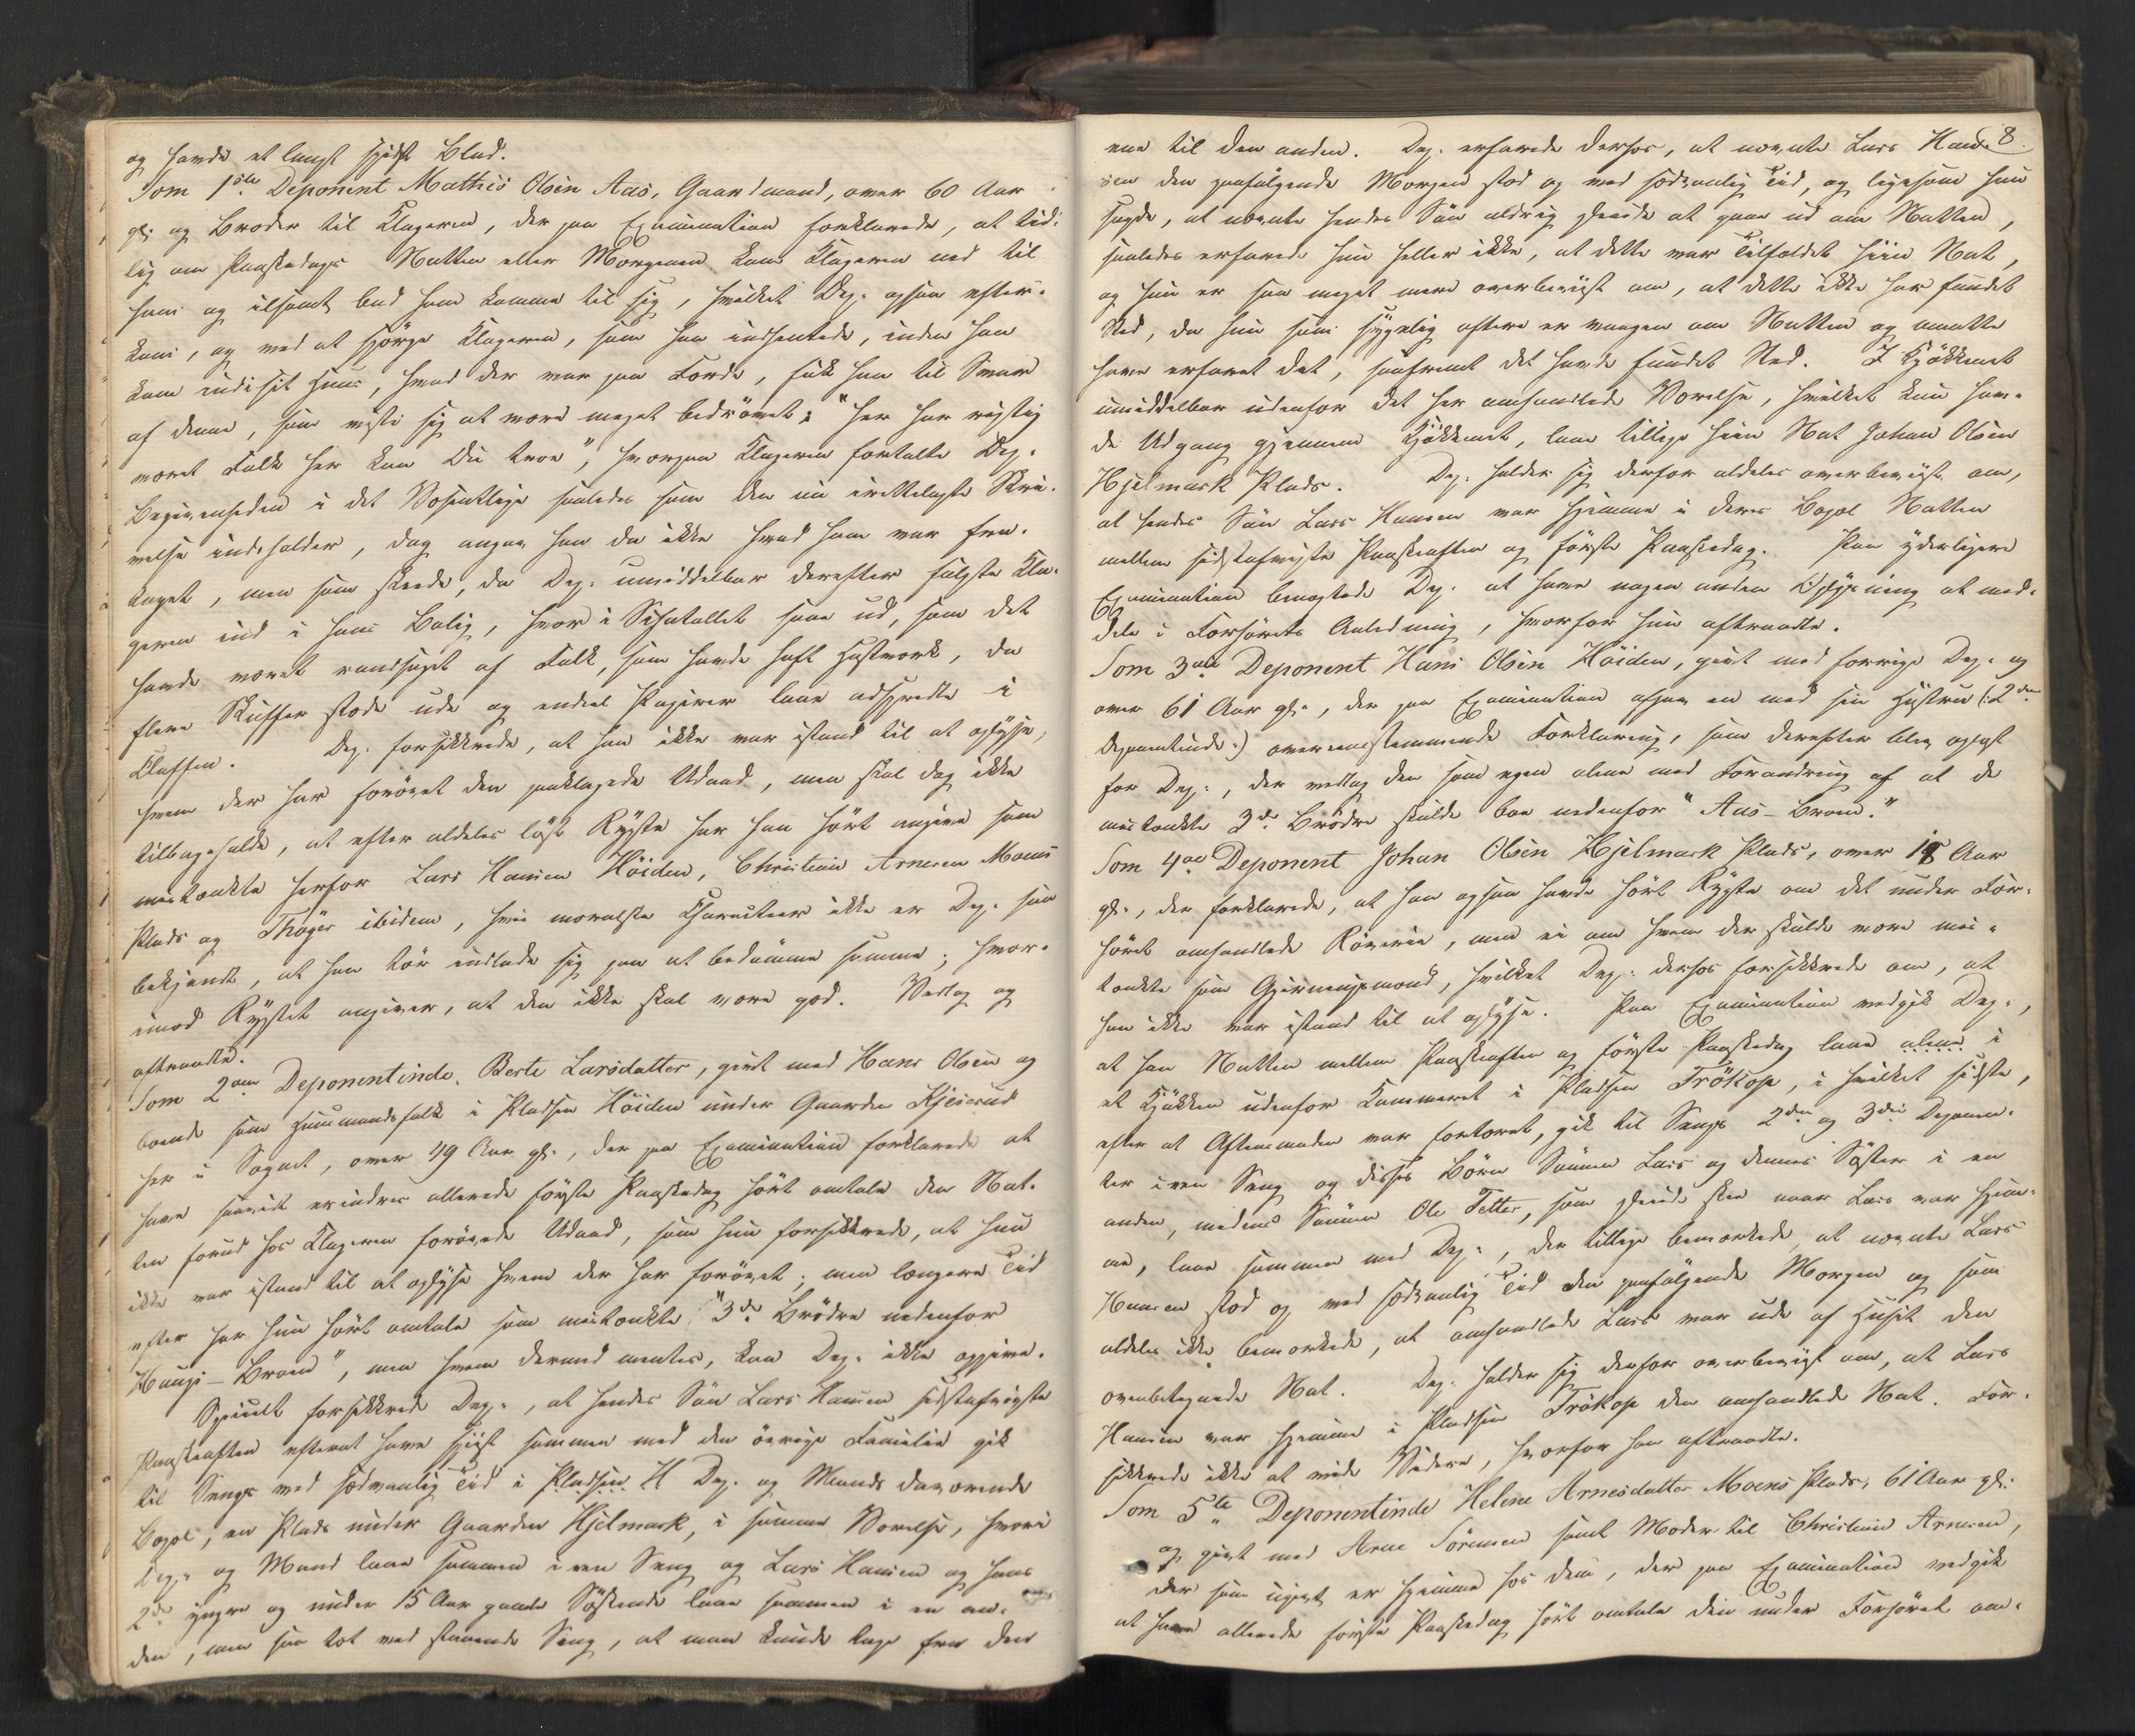 og havde et langt spidst Blad.
Som 1ste Deponent Mathis Olsen Aas, Gaardmand, over 60 Aar
gl. og Broder til Klageren, der paa Examination forklarede, at tid-
lig om Paaskedags Natten eller Morgenen kom Klageren ned til
ham og ilsomt bad ham komme til sig, hvilket Dep. ogsaa efter-
kom, og ved at spörge Klageren, som han indhentede, inden han
kom ind i sit Huus, hvad der var paa Færde, fik han til Svar
af denne, som viste sig at være meget bedrövet: "her har rigtig
været Folk her kan Du troe", hvorpaa Klageren fortalte Dep.
Begivenheden i det Væsentlige saaledes som den nu irettelagte Skri-
velse indeholder, dog angav han da ikke hvad ham var fra-
taget, men som skeede, da Dep. umiddelbar derefter fulgte Kla-
geren ind i hans Bolig, hvor i Schatollet saae ud, som det
havde været randsaget af Folk, som havde haft Hastværk, da
flere Skuffer stode ude og endeel Papirer laae adspredte i
Klaffen. Dep. forsikkrede, at han ikke var istand til at oplyse,
hvem der har forövet den paaklagede Udaad, men skal dog ikke
tilbageholde, at efter aldeles löst Rygte har han hört angive som
mistænkte herfor Lars Hansen Höiden, Christian Arnesen Moens
Plads og Thöger ibidem, hvis moralske Charakteer ikke er Dep. saa
bekjendt, at han tör indlade sig paa at bedömme samme; hvor-
imod Rygtet angiver, at den ikke skal være god. Vedtog og
aftraadte.
Som 2den Deponentinde, Berte Larsdatter, givt med Hans Olsen og
boende som Huusmandsfolk i Pladsen Höiden under Gaarden Kjeserud
her i Sognet, over 49 Aar gl., der paa Examination forklarede at
have saavidt erindres allerede förste Paaskedag hört omtale den Nat-
ten forud hos Klageren forövede Udaad, som hun forsikkrede, at hun
ikke var istand til at oplyse hvem der har forövet; men længere Tid
efter har hun hört omtale som mistænkte "3de Brödre nedenfor
Haugs-Broen", men hvem dermed mentes, kan Dep. ikke opgive.
Specielt forsikkrede Dep., at hendes Sön Lars Hansen sidstafvigte
Paaskeaften efterat have spiist sammen med den övrige Familie gik
til Sengs ved sædvanlig Tid i Pladsen H Dep. og Mands daværende
Bopæl, en Plads under Gaarden Hjelmark, i samme Værelse, hvori
Dep. og Mand laae sammen i een Seng og Lars Hansen og hans
2de yngre og under 15 Aar gamle Söskende laae sammen i en an-
den, men saa tæt ved staaende Seng, at man kunde tage fra den
8.
ene til den anden. Dep. erfarede derhos, at nævnte Lars Han-
sen den paafölgende Morgen stod op ved sædvanlig Tid, og ligesom hun
sagde, at nævnte hendes Sön aldrig pleiede at gaae ud om Natten,
saaledes erfarede hun heller ikke, at dette var Tilfældet hiin Nat,
og hun er saa meget mere overbeviist om, at dette ikke har fundet
Sted, da hun som sygelig oftere er vaagen om Natten og maatte
have erfaret det, saafremt det havde fundet Sted. I Kjökkenet
umiddelbar udenfor det her omhandlede Værelse, hvilket kun hav-
de Udgang gjennem Kjökkenet, laae tillige hiin Nat Johan Olsen
Hjelmark Plads. Dep. holder sig derfor aldeles overbeviist om,
at hendes Sön Lars Hansen var hjemme i deres Bopæl Natten
mellem sidstafvigte Paaskeaften og förste Paaskedag. Paa yderligere
Examination benegtede Dep. at have nogen anden Oplysning at med-
dele i Forhörets Anledning, hvorfor hun aftraadte.
Som 3die Deponent Hans Olsen Höiden, givt med forrige Dep. og
over 61 Aar gl., der paa Examination afgav en med sin Hustru (: 2den
Deponentinde :) overeenstemmende Forklaring, som derefter blev oplæst
for Dep., der vedtog den som egen alene med Forandring af at de
mistænkte 3de Brödre skulde boe nedenfor "Aas-Broen."
Som 4de Deponent Johan Olsen Hjelmark Plads, over 18 Aar
gl., der forklarede, at han ogsaa havde hört Rygte om det under For-
höret omhandlede Röverie, men ei om hvem der skulde være mis-
tænkte som Gjerningsmænd, hvilket Dep. derhos forsikkrede om, at
han ikke var istand til at oplyse. Paa Examination vedgik Dep.,
at han Natten mellem Paaskeaften og förste Paaskedag laae alene i
et Kjökken udenfor Kammeret i Pladsen Trökop, i hvilket sidste,
efter at Aftensmaden var fortæret, gik til Sengs 2den og 3die Deponen-
ter i een Seng og disses Börn Sönnen Lars og dennes Söster i en
anden, medens Sönnen Ole Petter, som pleiede skee naar Lars var hjem-
me, laae sammen med Dep., der tillige bemærkede, at nævnte Lars
Hansen stod op ved sædvanlig Tid den paafölgende Morgen og som
aldeles ikke bemærkede, at omhandlede Lars var ude af Huset den
ovenbetegnede Nat. Dep. holder sig derfor overbeviist om, at Lars
Hansen var hjemme i Pladsen Trökop den omhandlede Nat. For-
sikkrede ikke at vide Videre, hvorfor han aftraadte.
Som 5te Deponentinde Helene Arnesdatter Moens Plads, 61 Aar gl.
og givt med Arne Sörensen samt Moder til Christian Arnesen,
der som ugivt er hjemme hos dem, der paa Examination vedgik
at have allerede förste Paaskedag hört omtale den under Forhöret om-